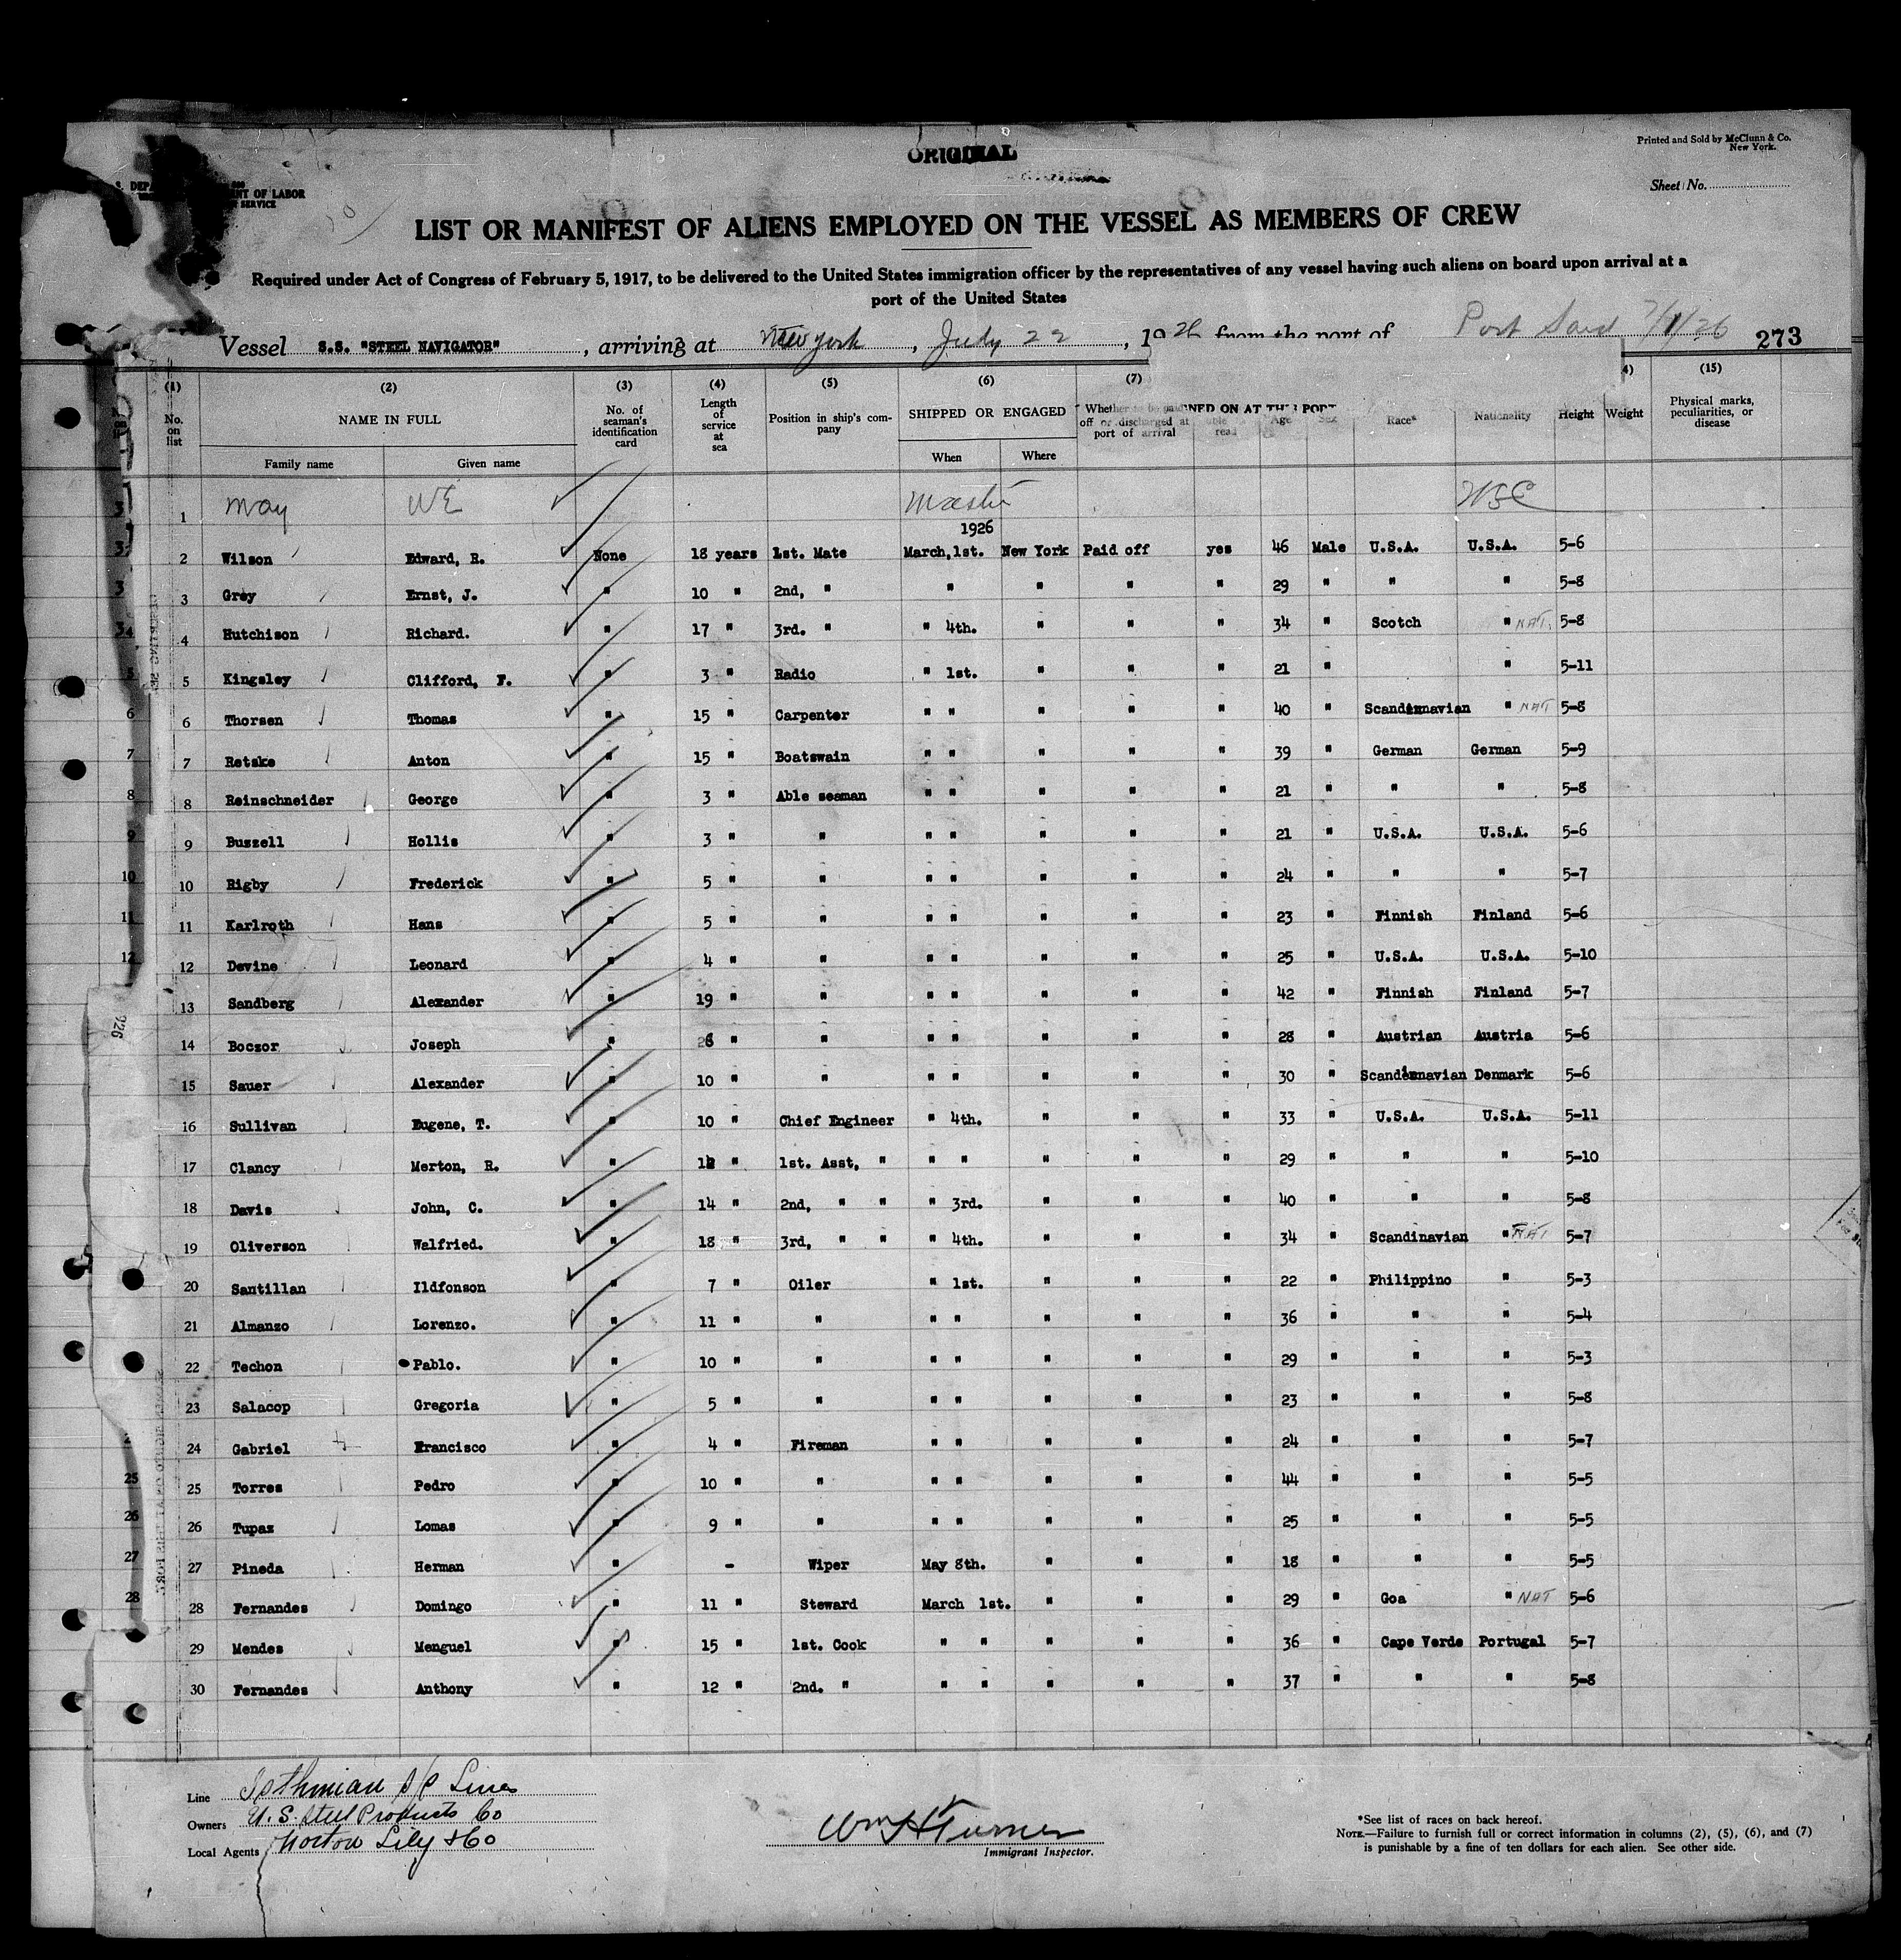 ORIGINAL
Printed and Sold by McClunn & Co.
New York.
Sheet No.
ENT OF LABOR
SERVICE
LIST OR MANIFEST OF ALIENS EMPLOYED ON THE VESSEL AS MEMBERS OF CREW
Required under Act of Congress of February 5, 1917, to be delivered to the United States immigration officer by the representatives of any vessel having such aliens on board upon arrival at a
port of the United States
Vessel S.S. "STEEL NAVIGATOR", arriving at New York, July 22, 1926 from the port of Port Said 7/1/26 273
(1) (2) (3) (4) (5) (6) (7) (15)
No. on list NAME IN FULL Family name Given name No. of seaman's identification card Length of service at sea Position in ship's company SHIPPED OR ENGAGED When Where Whether to be paid off or discharged at port of arrival able read Age Sex Race* Nationality Height Weight Physical marks, peculiarities, or disease
1 May WE Master
1926
2 Wilson Edward, R. None 18 years 1st. Mate March,1st. New York Paid off yes 46 Male U.S.A. U.S.A. 5-6
3 Grey Ernst, J. " 10 " 2nd, " " " " " 29 " " " 5-8
4 Hutchison Richard. " 17 " 3rd. " " 4th. " " " 34 " Scotch " NAT. 5-8
5 Kingsley Clifford, F. " 3 " Radio " 1st. " " " 21 " " 5-11
6 Thorsen Thomas " 15 " Carpenter " " " " " 40 " Scandinavian " NAT 5-8
7 Retske Anton " 15 " Boatswain " " " " " 39 " German German 5-9
8 Reinschneider George " 3 " Able seaman " " " " " 21 " " " 5-8
9 Buzzell Hollis " 3 " " " " " " " 21 " U.S.A. U.S.A. 5-6
10 Rigby Frederick " 5 " " " " " " " 24 " " " 5-7
11 Karlroth Hans " 5 " " " " " " " 23 " Finnish Finland 5-6
12 Devine Leonard " 4 " " " " " " " 25 " U.S.A. U.S.A. 5-10
13 Sandberg Alexander " 19 " " " " " " " 42 " Finnish Finland 5-7
14 Boczor Joseph " " " " " " " " 28 " Austrian Austria 5-6
15 Sauer Alexander " 10 " " " " " " " 30 " Scandinavian Denmark 5-6
16 Sullivan Eugene, T. " 10 " Chief Engineer " 4th. " " " 33 " U.S.A. U.S.A. 5-11
17 Clancy Merton, R. " " 1st. Asst, " " " " " " 29 " " " 5-10
18 Davis John, C. " 14 " 2nd, " " " 3rd. " " " 40 " " " 5-8
19 Oliverson Walfried. " 18 " 3rd, " " " 4th. " " " 34 " Scandinavian " NAT 5-7
20 Santillan Ildfonson " 7 " Oiler " 1st. " " " 22 " Philippino " 5-3
21 Almanzo Lorenzo. " 11 " " " " " " " 36 " " " 5-4
22 Techon Pablo. " 10 " " " " " " " 29 " " " 5-3
23 Salacop Gregoria " 5 " " " " " " " 23 " " " 5-8
24 Gabriel Francisco " 4 " Fireman " " " " " 24 " " " 5-7
25 Torres Pedro " 10 " " " " " " " 44 " " " 5-5
26 Tupaz Lomas " 9 " " " " " " " 25 " " " 5-5
27 Pineda Herman " - Wiper May 8th. " " " 18 " " " 5-5
28 Fernandes Domingo " 11 " Steward March 1st. " " " 29 " Goa " NAT 5-6
29 Mendes Menguel " 15 " 1st. Cook " " " " " 36 " Cape Verde Portugal 5-7
30 Fernandes Anthony " 12 " 2nd. " " " " " " 37 " " " 5-8
Line Isthmian S/S Lines
Owners U.S. Steel Products Co
Local Agents Norton Lily & Co
Wm H Turner
Immigrant Inspector.
*See list of races on back hereof.
NOTE.—Failure to furnish full or correct information in columns (2), (5), (6), and (7)
is punishable by a fine of ten dollars for each alien. See other side.